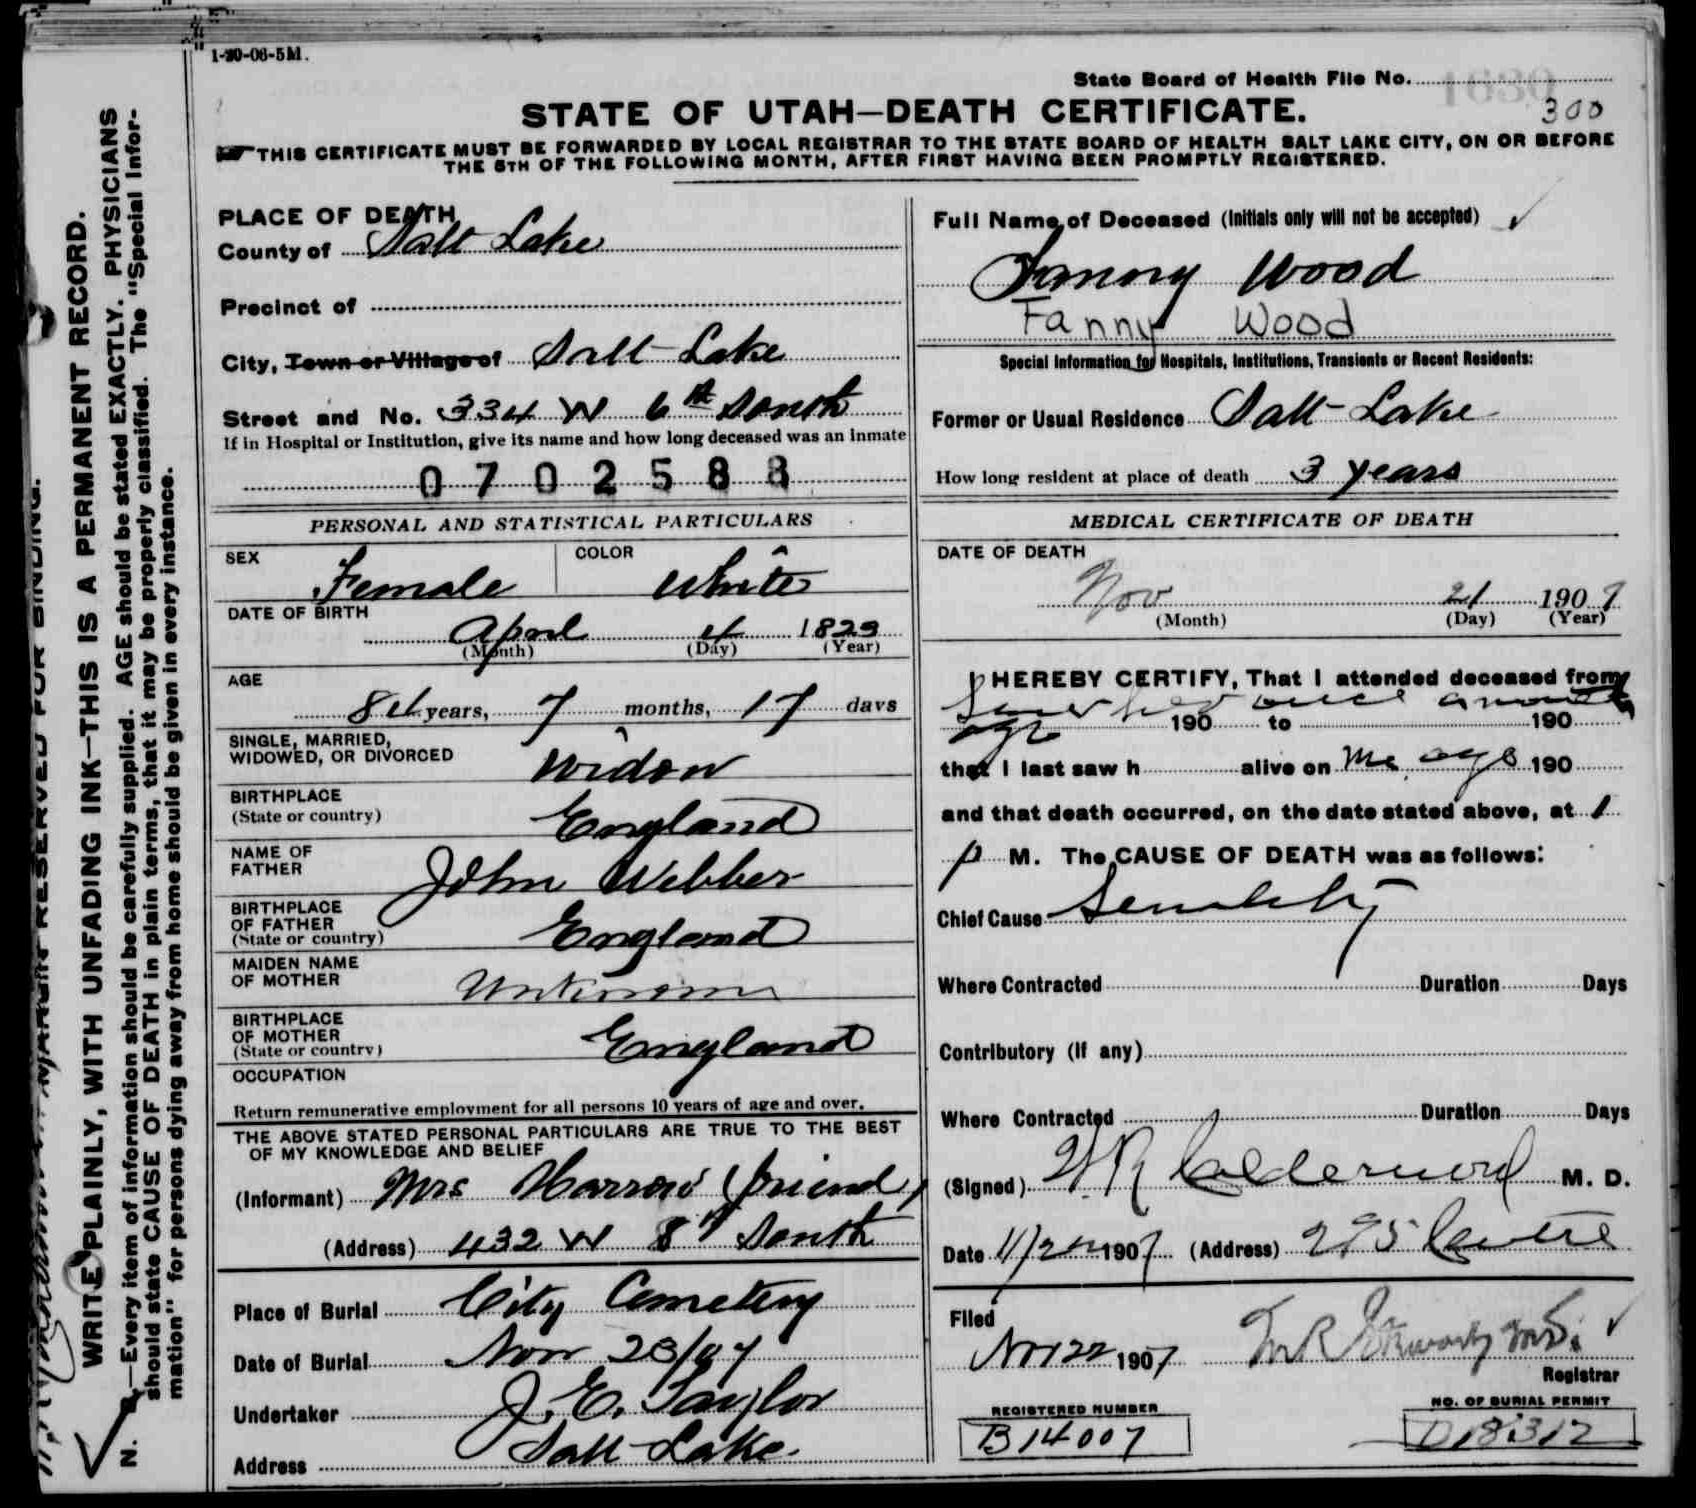 1-20-06-5M.
State Board of Health File No. 1630
300
STATE OF UTAH—DEATH CERTIFICATE.
THIS CERTIFICATE MUST BE FORWARDED BY LOCAL REGISTRAR TO THE STATE BOARD OF HEALTH SALT LAKE CITY, ON OR BEFORE
THE 5TH OF THE FOLLOWING MONTH, AFTER FIRST HAVING BEEN PROMPTLY REGISTERED.
MARGIN RESERVED FOR BINDING.
WRITE PLAINLY, WITH UNFADING INK—THIS IS A PERMANENT RECORD.
N. B.—Every item of information should be carefully supplied. AGE should be stated EXACTLY. PHYSICIANS
should state CAUSE OF DEATH in plain terms, that it may be properly classified. The "Special Infor-
mation" for persons dying away from home should be given in every instance.
PLACE OF DEATH
County of Salt Lake
Precinct of
City, Town or Village of Salt Lake
Street and No. 334 W 6th South
If in Hospital or Institution, give its name and how long deceased was an inmate
0702588
PERSONAL AND STATISTICAL PARTICULARS
SEX Female COLOR White
DATE OF BIRTH
April 4 1823
(Month) (Day) (Year)
AGE
84 years, 7 months, 17 days
SINGLE, MARRIED,
WIDOWED, OR DIVORCED Widow
BIRTHPLACE
(State or country) England
NAME OF
FATHER John Webber
BIRTHPLACE
OF FATHER
(State or country) England
MAIDEN NAME
OF MOTHER Unknown
BIRTHPLACE
OF MOTHER
(State or country) England
OCCUPATION
Return remunerative employment for all persons 10 years of age and over.
THE ABOVE STATED PERSONAL PARTICULARS ARE TRUE TO THE BEST
OF MY KNOWLEDGE AND BELIEF
(Informant) Mrs (friend)
(Address) 432 W 8th South
Place of Burial City Cemetery
Date of Burial Nov 23/07
Undertaker J. E. Taylor
Address Salt Lake.
Full Name of Deceased (Initials only will not be accepted)
Fanny Wood
Fanny Wood
Special Information for Hospitals, Institutions, Transients or Recent Residents:
Former or Usual Residence Salt Lake
How long resident at place of death 3 years
MEDICAL CERTIFICATE OF DEATH
DATE OF DEATH
Nov 21 1907
(Month) (Day) (Year)
I HEREBY CERTIFY, That I attended deceased from
her once a month
ago 190 to 190
that I last saw h alive on Mo ago 190
and that death occurred, on the date stated above, at 1
p M. The CAUSE OF DEATH was as follows:
Chief Cause Senility
Where Contracted Duration Days
Contributory (if any)
Where Contracted Duration Days
(Signed) W R Calderwood M. D.
Date 11/22 1907 (Address)
Filed
Nov 22 1907 M R Stewart MD.
Registrar
REGISTERED NUMBER
B14007
NO. OF BURIAL PERMIT
D18312